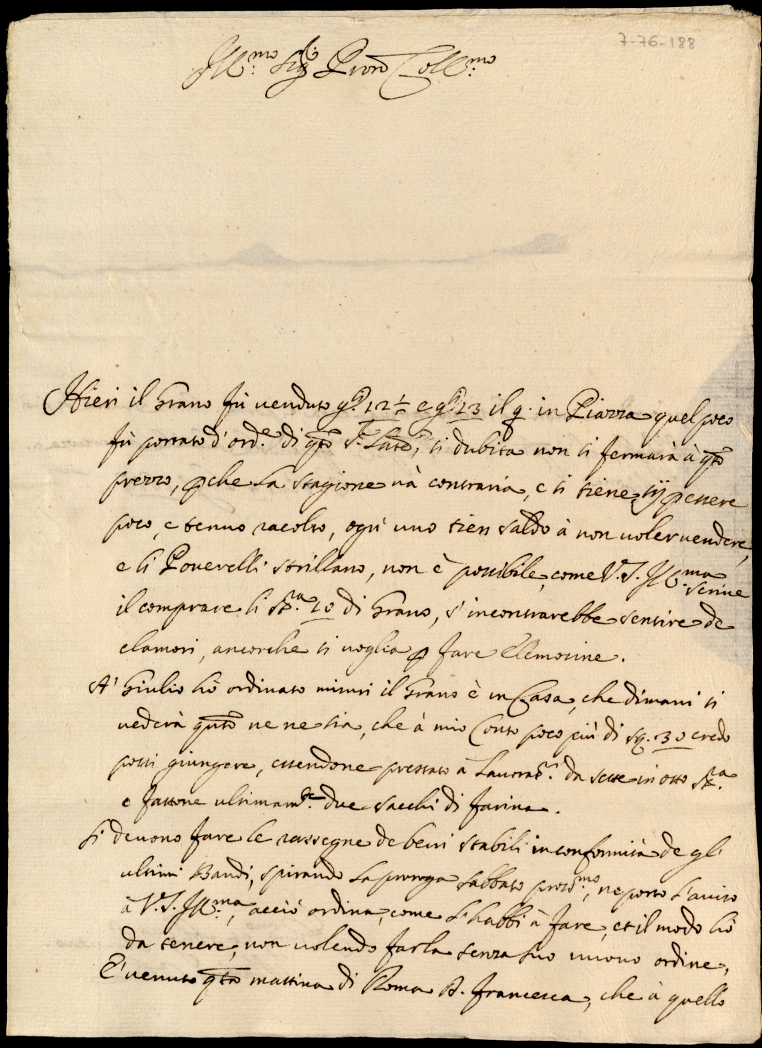 7-76-188
Ill:mo Sig:r Pron Coll:mo
Hieri il Grano fù venduto g.li 12½ e g.li 13 il q. in Piazza quel poco
fù portato d'ord.e di qsto S.r, si dubita non si fermarà à qsto
prezzo, pche la stagione và contraria, e si tiene p essere
poco, e tenuo racolto, ogni uno tien saldo à non voler vendere,
e li Poverelli strillano, non è possibile, come V.S. Ill:ma scrive
il comprare li st.ra 20 di Grano, s'incontrarebbe sentire de
clamori, ancorche si voglia p fare Elemosine.
A' Giulio hò ordinato misuri il Grano è in Casa, che dimani si
vederà qnto ne ne sia, che à mio Conto poco più di sq. 30 credo
possi giungere, essendone prestato a Lavorat.ri da sette in otto st.ra
e fattone ultimam.te due sacchi di farina.
Si devono fare le rassegne de beni stabili in conformità de gl'
ultimi Bandi, spirando la proroga sabbato pross:mo, ne porto l'aviso
à V.S. Ill:ma, acciò ordina, come s'habbi à fare, et il modo hò
da tenere, non volendo farla senza suo nuovo ordine,
E' venuto qsta mattina di Roma D. Francesca, che à quello